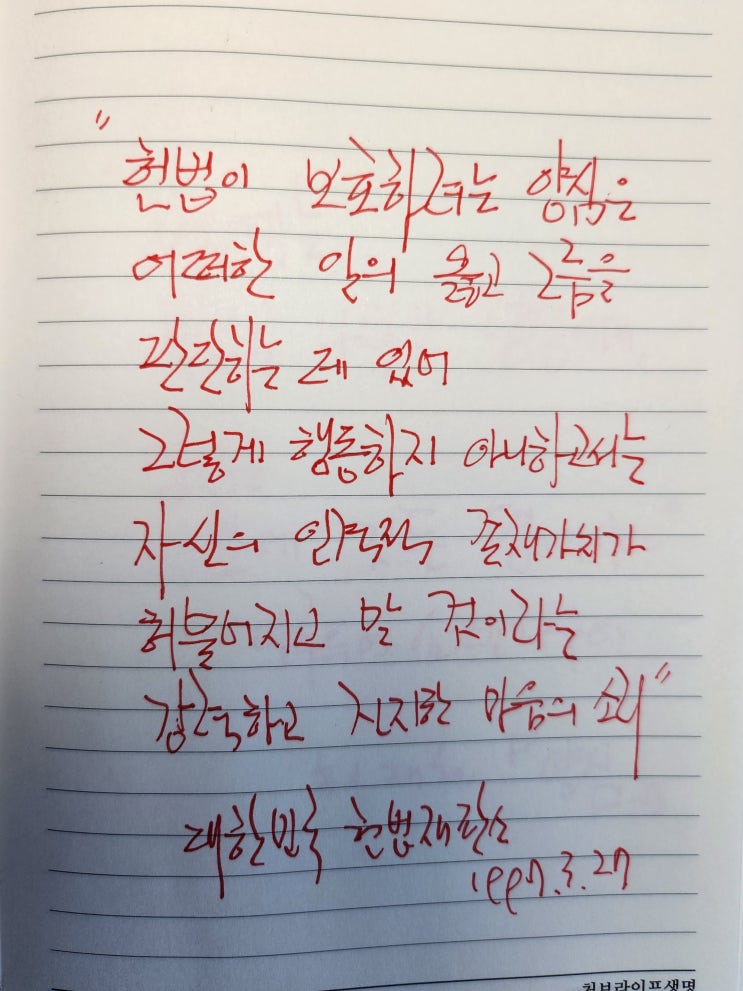 "헌법이 보호하려는 양심은
어떠한 일의 옳고 그름을
판단하는 데 있어
그렇게 행동하지 아니하고서는
자신의 인격적 존재가치가
허물어지고 말 것이라는
강력하고 진지한 마음의 소리"
대한민국 헌법재판소
1997.3.27
처브라이프생명